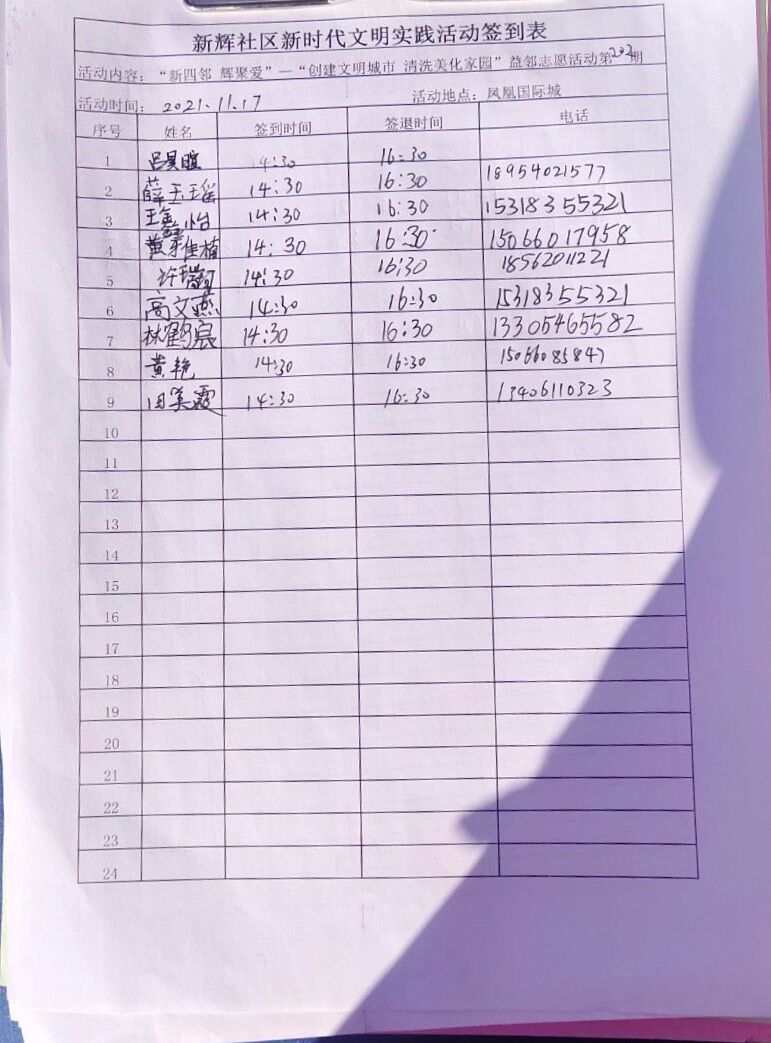 新辉社区新时代文明实践活动签到表
活动内容：“新四邻 辉聚爱”—“创建文明城市 清洗美化家园”益邻志愿活动第202期
活动时间：2021.11.17 活动地点：凤凰国际城
序号 姓名 签到时间 签退时间 电话
1 吕昊暄 14:30 16:30
2 薛玉瑶 14:30 16:30 18954021577
3 王鑫怡 14:30 16:30 15318355321
4 黄 佳楠 14:30 16:30 15066017958
5 许瑞 14:30 16:30 18562011221
6 高文燕 14:30 16:30 15318355321
7 林鹤宸 14:30 16:30 13305465582
8 黄艳 14:30 16:30 15066085847
9 田美霞 14:30 16:30 13406110323
10
11
12
13
14
15
16
17
18
19
20
21
22
23
24